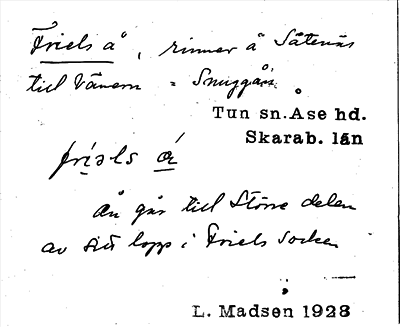 Friels å, rinner å Såtenäs
till Vänern = Snuggån
Tun sn. Åse hd.
Skarab. län
friəls á
Ån går till större delen
av sitt lopp i Friels socken
L. Madsen 1928